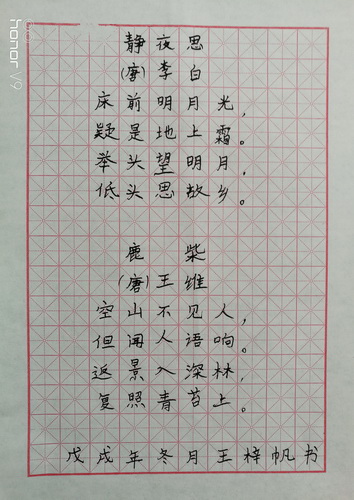 honor V9
静夜思
(唐)李白
床前明月光,
疑是地上霜。
举头望明月,
低头思故乡。
鹿柴
(唐)王维
空山不见人,
但闻人语响。
返景入深林,
复照青苔上。
戊戌年冬月王梓帆书